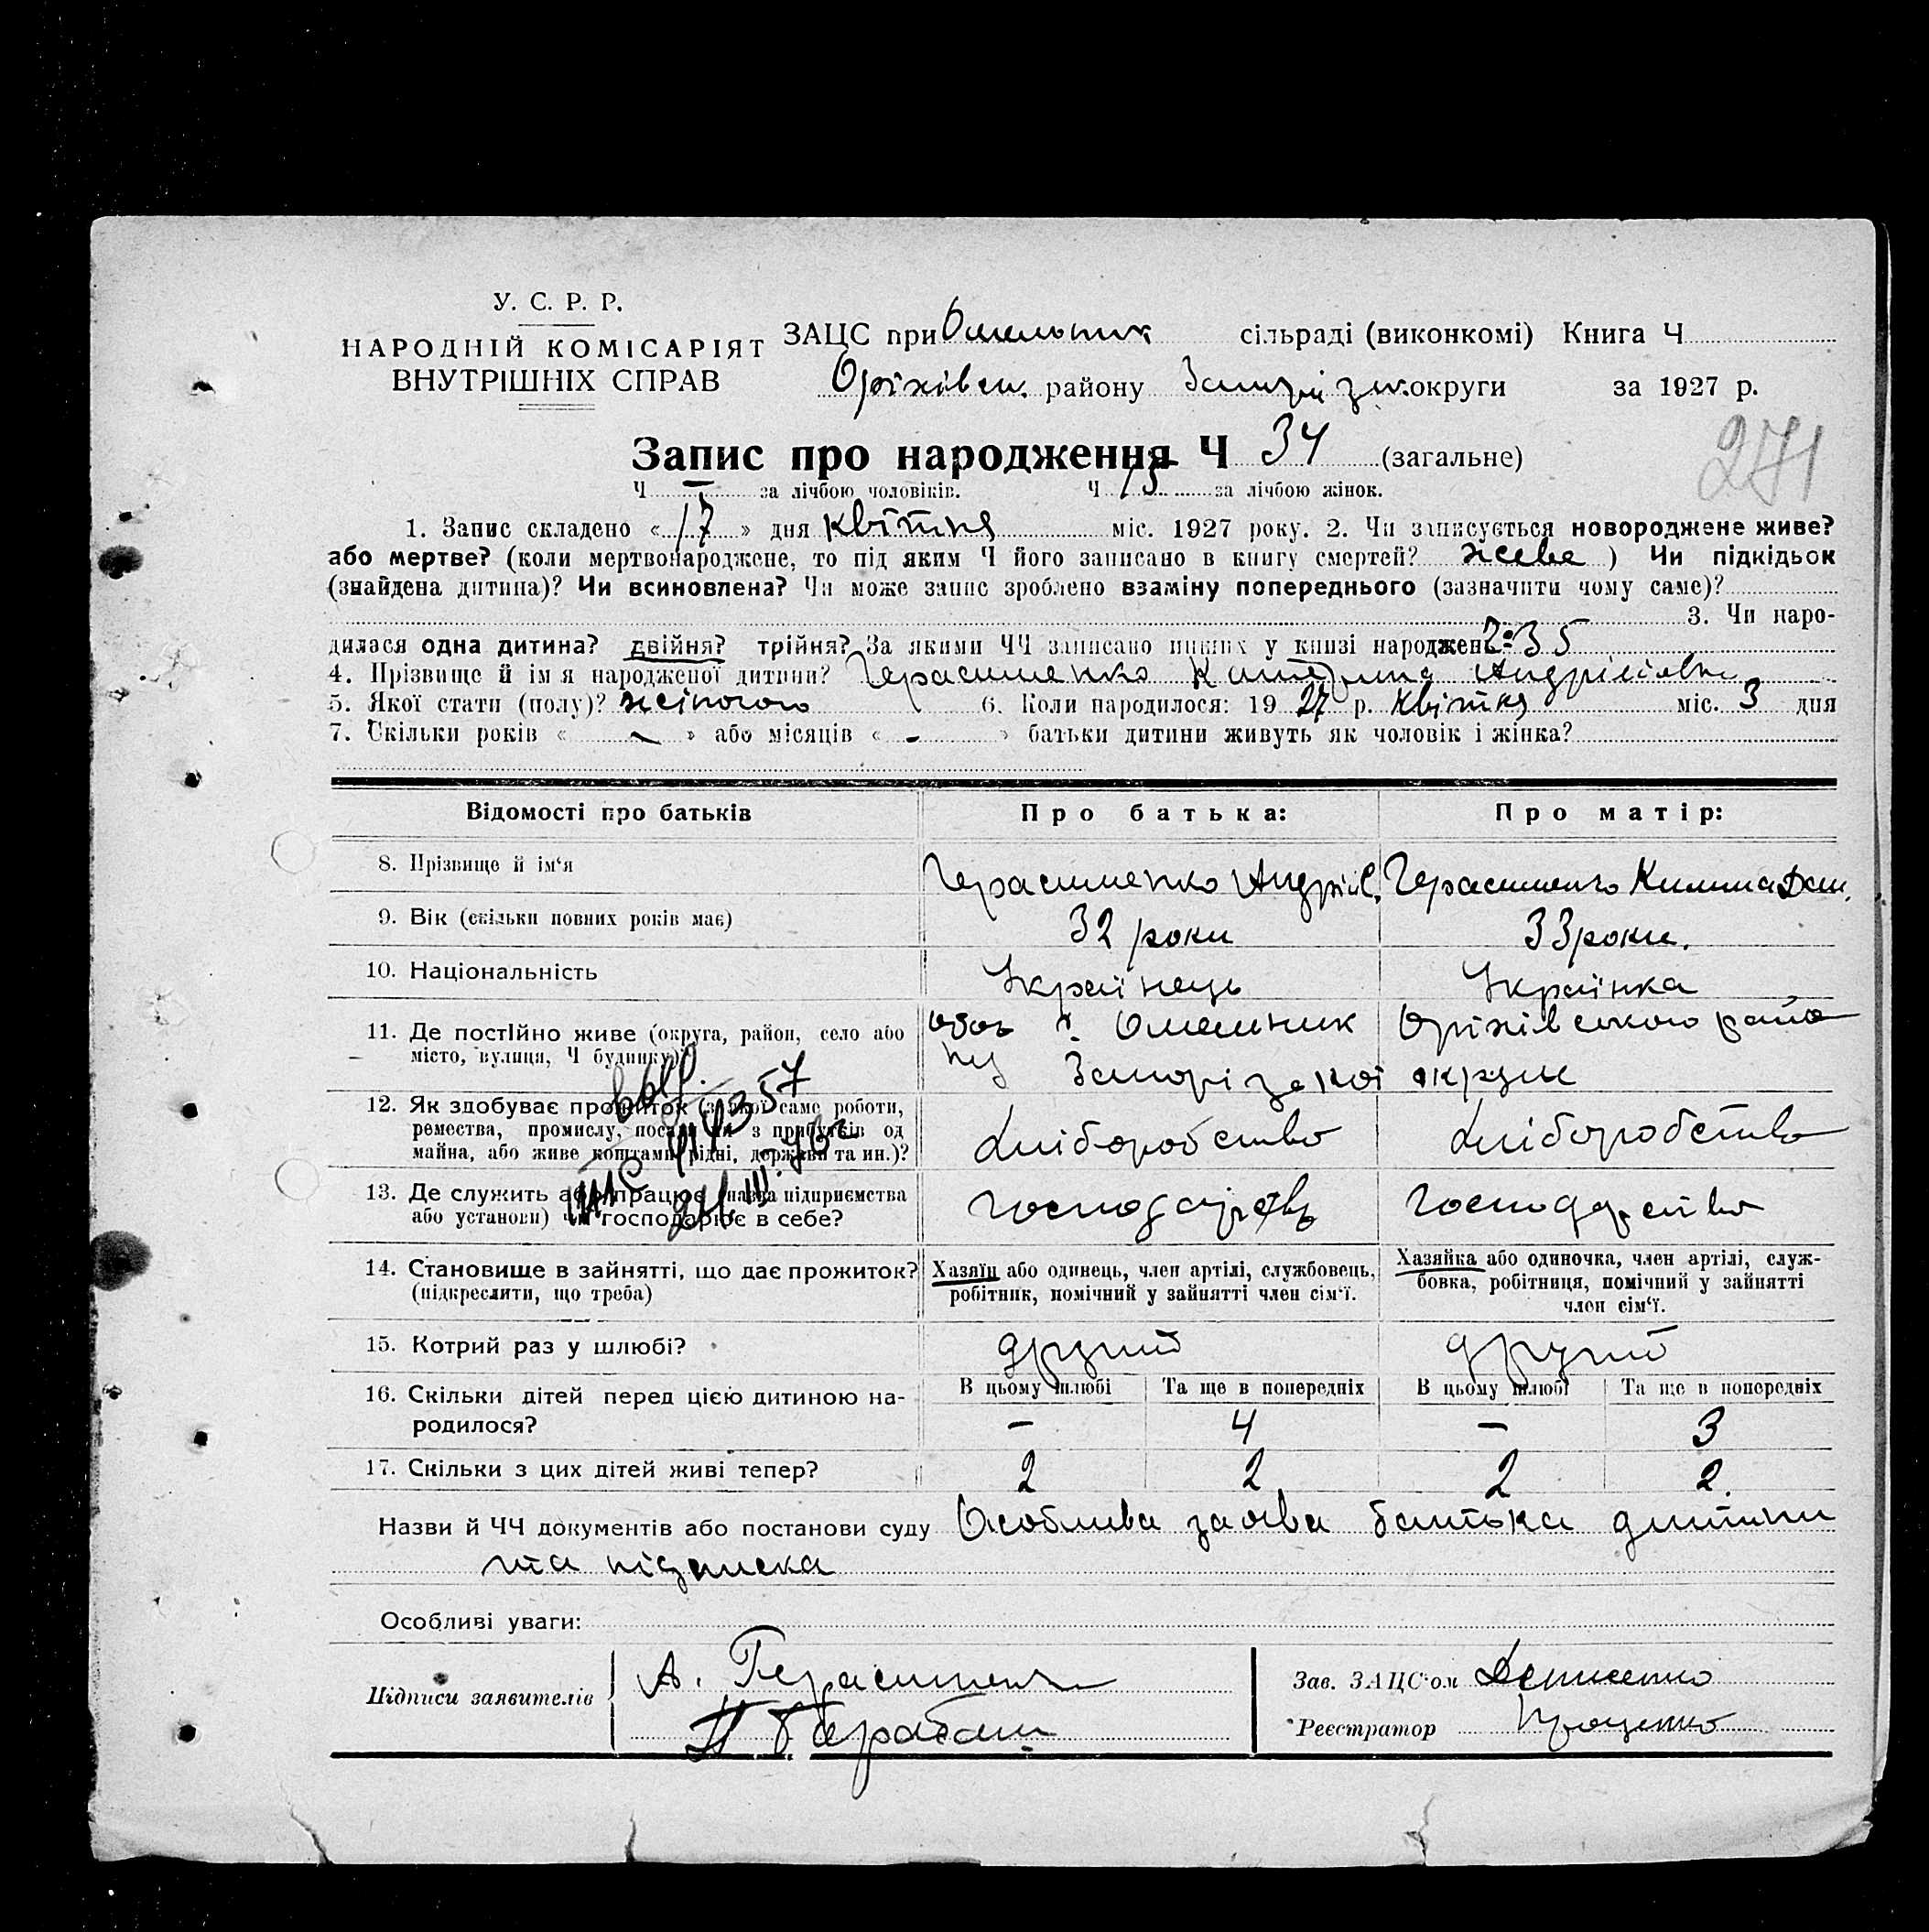 У. С. Р. Р.
НАРОДНІЙ КОМІСАРІЯТ
ВНУТРІШНІХ СПРАВ
ЗАЦС при Омельник сільраді (виконкомі) Книга Ч
Оріхівськ. району Запорізьк. округи за 1927 р.
271
Запис про народження Ч 34 (загальне)
Ч — за лічбою чоловіків. Ч 15 за лічбою жінок.
1. Запис складено « 17 » дня квітня міс. 1927 року. 2. Чи записується новороджене живе?
або мертве? (коли мертвонароджене, то під яким Ч його записано в книгу смертей? живе ) Чи підкідьок
(знайдена дитина)? Чи всиновлена? Чи може запис зроблено взаміну попереднього (зазначити чому саме)?
3. Чи наро-
дилася одна дитина? двійня? трійня? За якими ЧЧ записано инших у книзі народжень? 35
4. Прізвище й ім'я народженої дитини? Герасименко Катерина Андріївна
5. Якої стати (полу)? жіночого 6. Коли народилося: 19 27 р. Квітня міс. 3 дня
7. Скільки років « — » або місяців « - » батьки дитини живуть як чоловік і жінка?
Відомості про батьків Про батька: Про матір:
8. Прізвище й ім'я Герасименко Андрій Герасименко
9. Вік (скільки повних років має) 32 роки 33 роки.
10. Національність Українець Українка
11. Де постійно живе (округа, район, село або Омельник Оріхівського райо
місто, вулиця, Ч будинку)? ну Запорізької округи
12. Як здобуває прожиток (з якої саме роботи,
ремества, промислу, посади чи з прибутків од Хліборобство Хліборобство
майна, або живе коштами рідні, держави та ин.)?
13. Де служить або працює (назва підприємства
або установи) чи господарює в себе? господарство господарство
14. Становище в зайнятті, що дає прожиток? Хазяїн або одинець, член артілі, службовець, Хазяйка або одиночка, член артілі, служ-
(підкреслити, що треба) робітник, помічний у зайнятті член сім'ї. бовка, робітниця, помічний у зайнятті
член сім'ї.
15. Котрий раз у шлюбі? другий другий
16. Скільки дітей перед цією дитиною на- В цьому шлюбі Та ще в попередніх В цьому шлюбі Та ще в попередніх
родилося? — 4 — 3
17. Скільки з цих дітей живі тепер? 2 2 2 2.
Назви й ЧЧ документів або постанови суду Особлива заява батька дитини
та підписка
Особливі уваги:
Підписи заявителів А. Герасименко Зав. ЗАЦС'ом Денисенко
П Барабаш Реєстратор Проценко